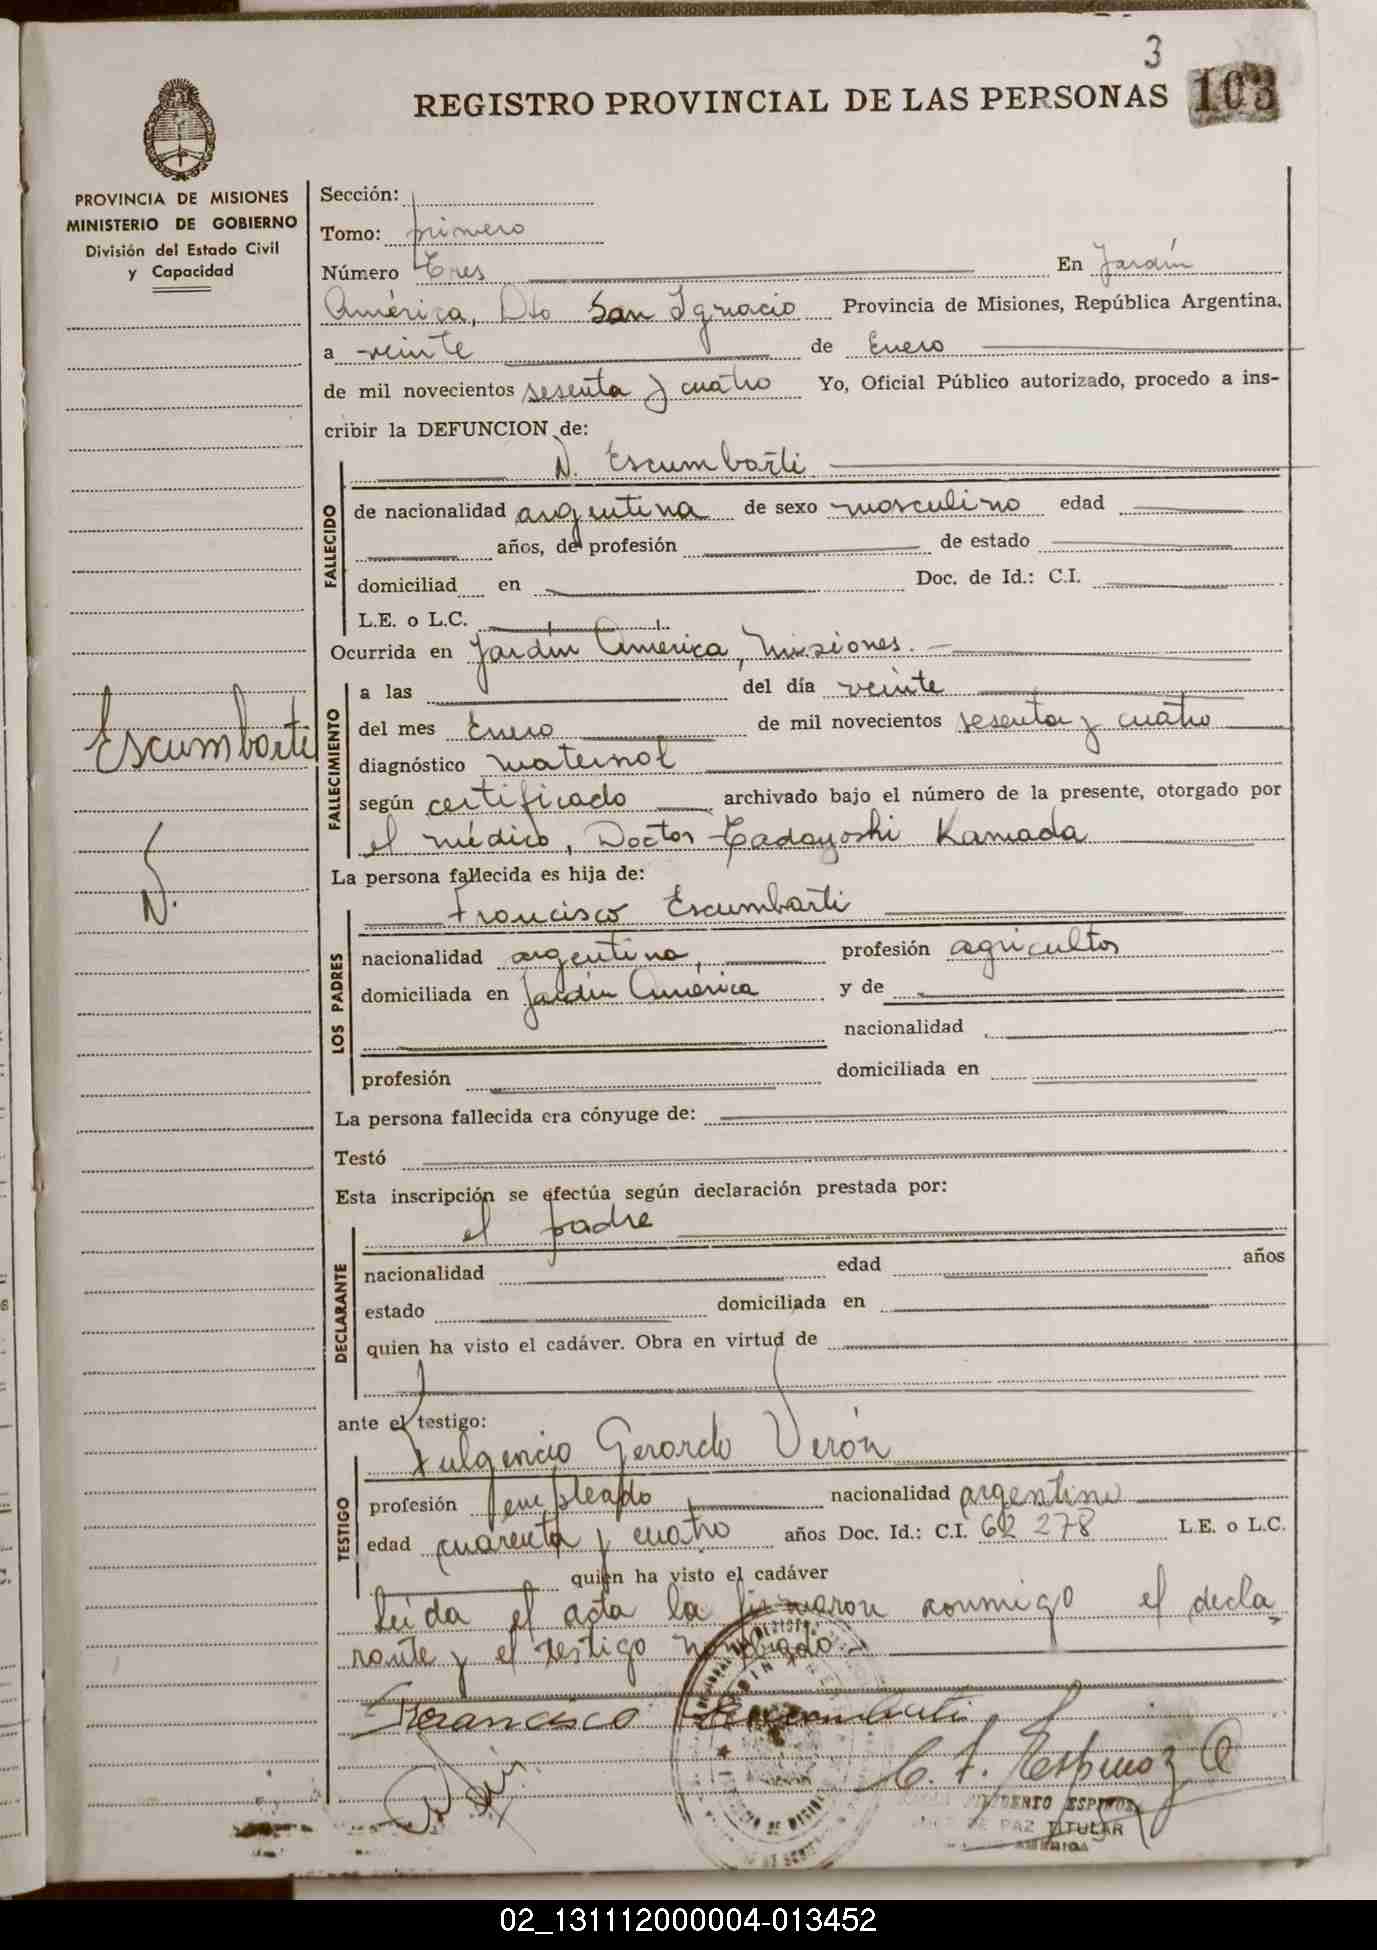 3
REGISTRO PROVINCIAL DE LAS PERSONAS 103
PROVINCIA DE MISIONES
MINISTERIO DE GOBIERNO
División del Estado Civil
y Capacidad
Sección:
Tomo: primero
Número Tres En Jardín
América, Dto San Ignacio Provincia de Misiones, República Argentina,
a veinte de Enero
de mil novecientos sesenta y cuatro Yo, Oficial Público autorizado, procedo a ins-
cribir la DEFUNCION de:
N. Escumbarti
FALLECIDO
de nacionalidad argentina de sexo masculino edad
años, de profesión de estado
domiciliad en Doc. de Id.: C.I.
L.E. o L.C.
Ocurrida en Jardín América, Misiones.
Escumbarti
N.
FALLECIMIENTO
a las del día veinte
del mes Enero de mil novecientos sesenta y cuatro
diagnóstico maternot
según certificado archivado bajo el número de la presente, otorgado por
el médico, Doctor Tadayoshi Kamada
La persona fallecida es hija de:
LOS PADRES
Francisco Escumbarti
nacionalidad argentina, profesión agricultor
domiciliada en Jardín América y de
nacionalidad
profesión domiciliada en
La persona fallecida era cónyuge de:
Testó
Esta inscripción se efectúa según declaración prestada por:
DECLARANTE
el padre
nacionalidad edad años
estado domiciliada en
quien ha visto el cadáver. Obra en virtud de
ante el testigo:
TESTIGO
Fulgencio Gerardo Verón
profesión empleado nacionalidad argentino
edad cuarenta y cuatro años Doc. Id.: C.I. 62 278 L.E. o L.C.
quien ha visto el cadáver
Leída el acta la firmaron conmigo el decla-
rante y el testigo nombrado
Francisco Escumbarti
C. F. Espinoza
BERTO ESPINOZA
DE PAZ TITULAR
AMERICA
02_131112000004-013452